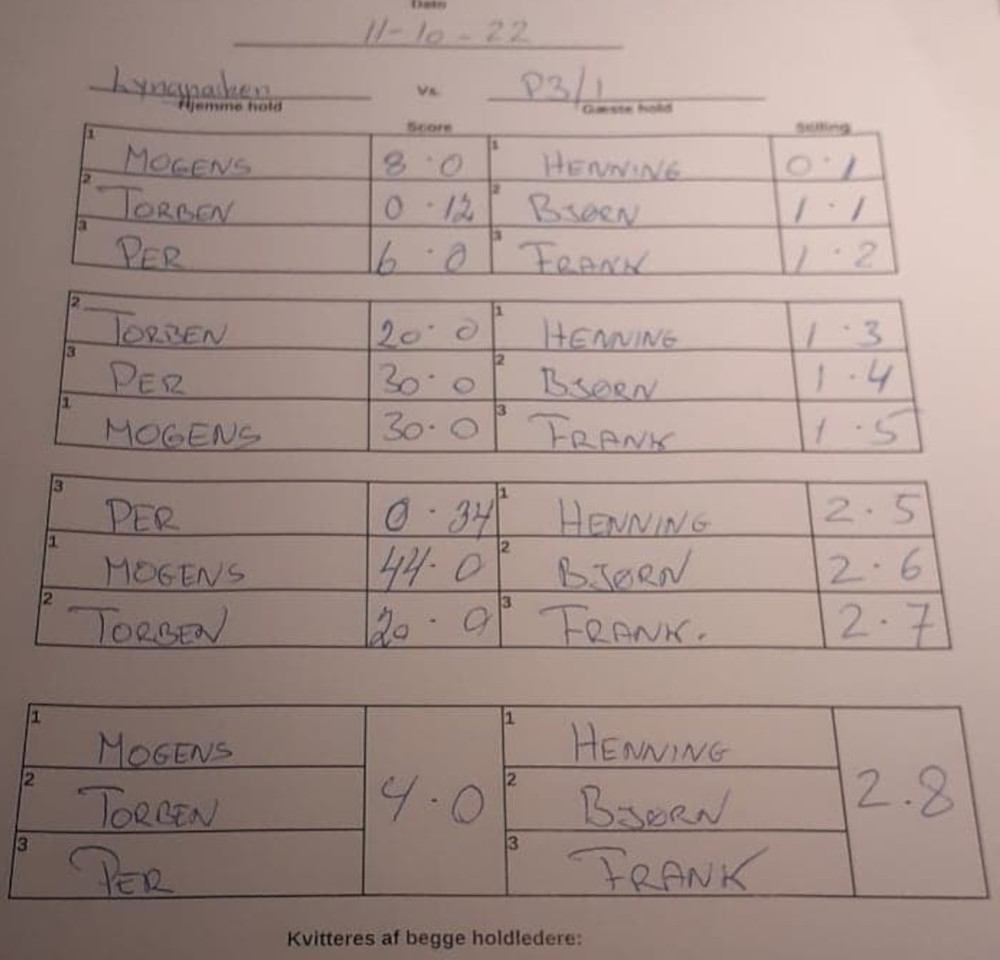 Dato
11-10-22
Lyngparken Vs. P3/1
Hjemme hold Gæste hold
Score Stilling
1 MOGENS 8·0 1 HENNING 0·1
2 TORBEN 0·12 2 BJØRN 1·1
3 PER 6·0 3 FRANK 1·2
2 TORBEN 20·0 1 HENNING 1·3
3 PER 30·0 2 BJØRN 1·4
1 MOGENS 30·0 3 FRANK 1·5
3 PER 0·34 1 HENNING 2·5
1 MOGENS 44·0 2 BJØRN 2·6
2 TORBEN 20·0 3 FRANK. 2·7
1 MOGENS 1 HENNING
2 TORBEN 4·0 2 BJØRN 2.8
3 PER 3 FRANK
Kvitteres af begge holdledere: